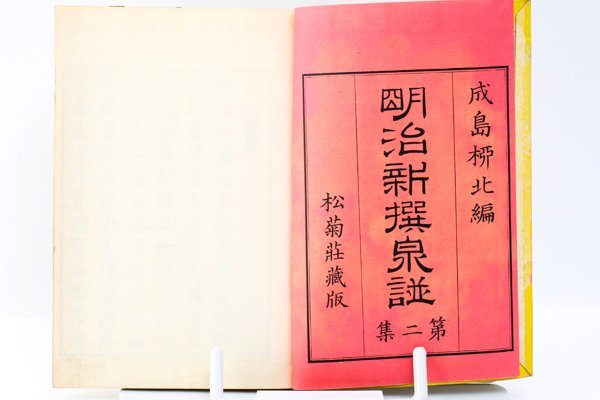 成島桺北編
明治新撰泉譜
第二集
松菊莊藏版